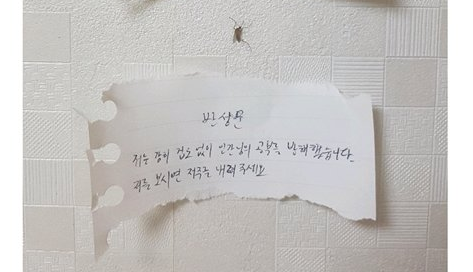 반성문
저는 감히 겁도 없이 인간님의 공부를 방해했습니다
저를 보시면 저주를 내려주세요